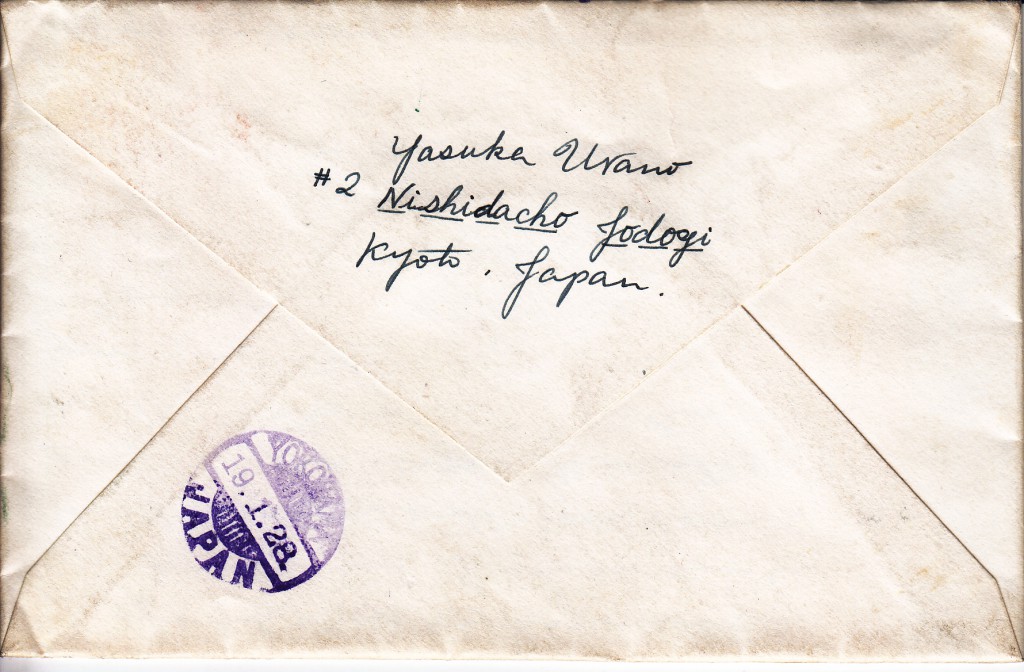 Yasuka Urano
#2 Nishidacho Jodogi
Kyoto, Japan.
YOKOHAMA
19.1.28
JAPAN